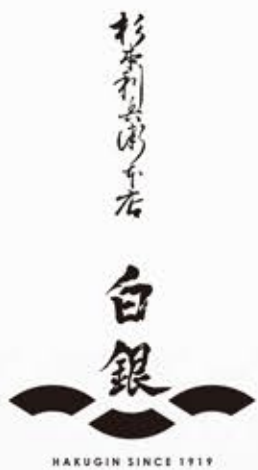 杉本利兵衛本店
白銀
HAKUGIN SINCE 1919